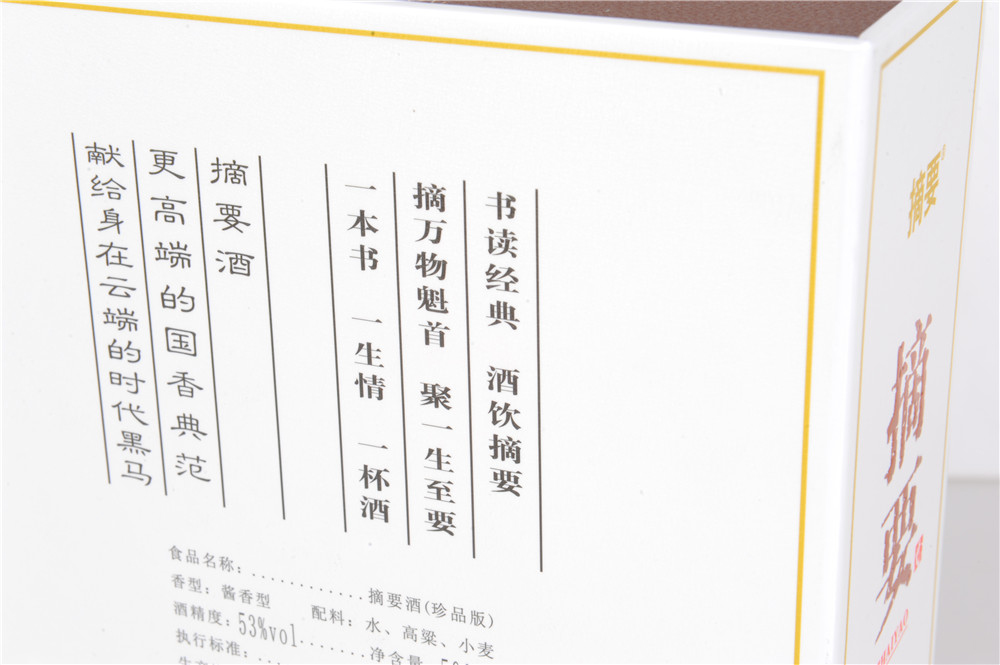 书读经典 酒饮摘要
摘万物魁首 聚一生至要
一本书 一生情 一杯酒
摘要酒
更高端的国香典范
献给身在云端的时代黑马
食品名称：............摘要酒(珍品版)
香型：酱香型 配料：水、高粱、小麦
酒精度：53%vol.......净含量
执行标准：...
摘要®
摘要